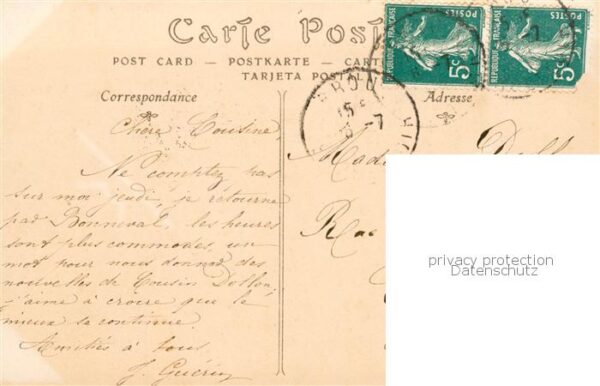 Carte Postale
POST CARD — POSTKARTE — CART
TARJETA POSTAL
Correspondance
Adresse
POSTES
REPUBLIQUE FRANÇAISE
5c
POSTES
REPUBLIQUE FRANÇAISE
5c
BROU
15
-7
OIR
Chère Cousine,
Ne comptez pas
sur moi jeudi, je retourne
par Bonneval, les heures
sont plus commodes, un
mot pour nous donner des
nouvelles de Cousin
j'aime à croire que le
mieux se continue.
Amitiés à tous
J. Guérin
Rue
privacy protection
Datenschutz